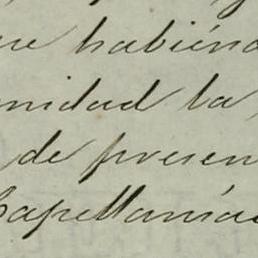 habiénd
nidad la
de presen
Capellanías